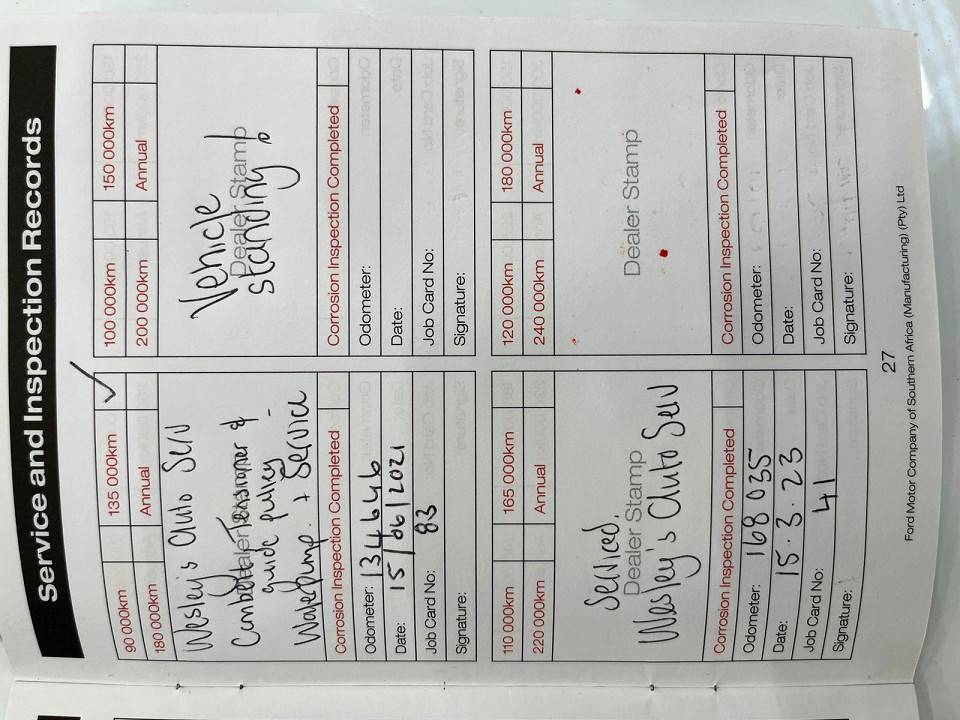 Service and Inspection Records
90 000km 135 000km ✓
180 000km Annual
Wesley's Auto Serv
Cambelt Tensioner &
Dealer Stamp
guide pulley -
Waterpump. + Service
Corrosion Inspection Completed
Odometer: 134646
Date: 15/06/2021
Job Card No: 83
Signature:
100 000km 150 000km
200 000km Annual
Vehicle
Dealer Stamp
standing
Corrosion Inspection Completed
Odometer:
Date:
Job Card No:
Signature:
110 000km 165 000km
220 000km Annual
Serviced.
Dealer Stamp
Wesley's Auto Serv
Corrosion Inspection Completed
Odometer: 168 035
Date: 15.3.23
Job Card No: 41
Signature:
120 000km 180 000km
240 000km Annual
Dealer Stamp
Corrosion Inspection Completed
Odometer:
Date:
Job Card No:
Signature:
27
Ford Motor Company of Southern Africa (Manufacturing) (Pty) Ltd